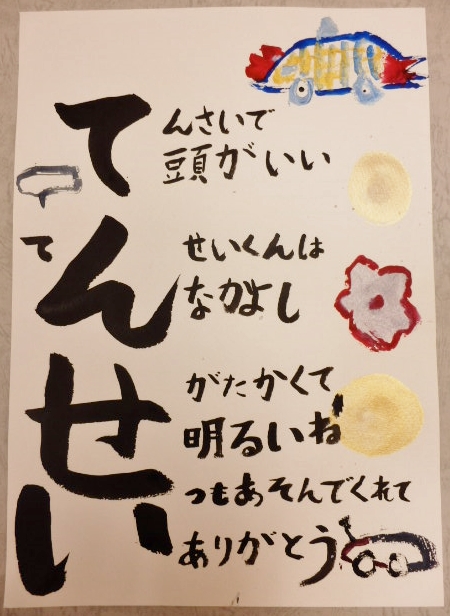 てんさいで
頭がいい
てんせいくんは
なかよし
せがたかくて
明るいね
いつもあそんでくれて
ありがとう